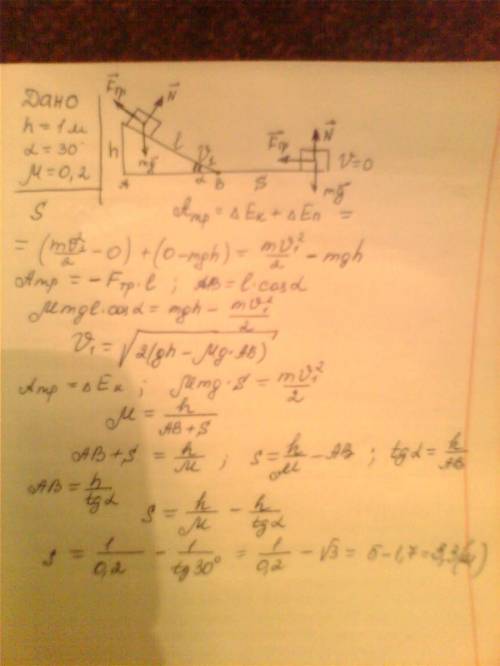 Дано
h = 1 м
α = 30°
M = 0,2
S
F⃗тр N⃗
h l mg⃗ V⃗₁
A α B S
F⃗тр N⃗ V=0
mg⃗
Aтр = ΔEк + ΔEп =
= (mV₁²/2 - 0) + (0 - mgh) = mV₁²/2 - mgh
Aтр = - Fтр·l ; AB = l·cosα
Mmgl·cosα = mgh - mV₁²/2
V₁ = √2(gh - Mg·AB)
Aтр = ΔEк ; Mmg·S = mV₁²/2
M = h/(AB + S)
AB + S = h/M ; S = h/M - AB ; tgα = h/AB
AB = h/tgα
S = h/M - h/tgα
S = 1/0,2 - 1/tg30° = 1/0,2 - √3 = 5 - 1,7 = 3,3 (м)